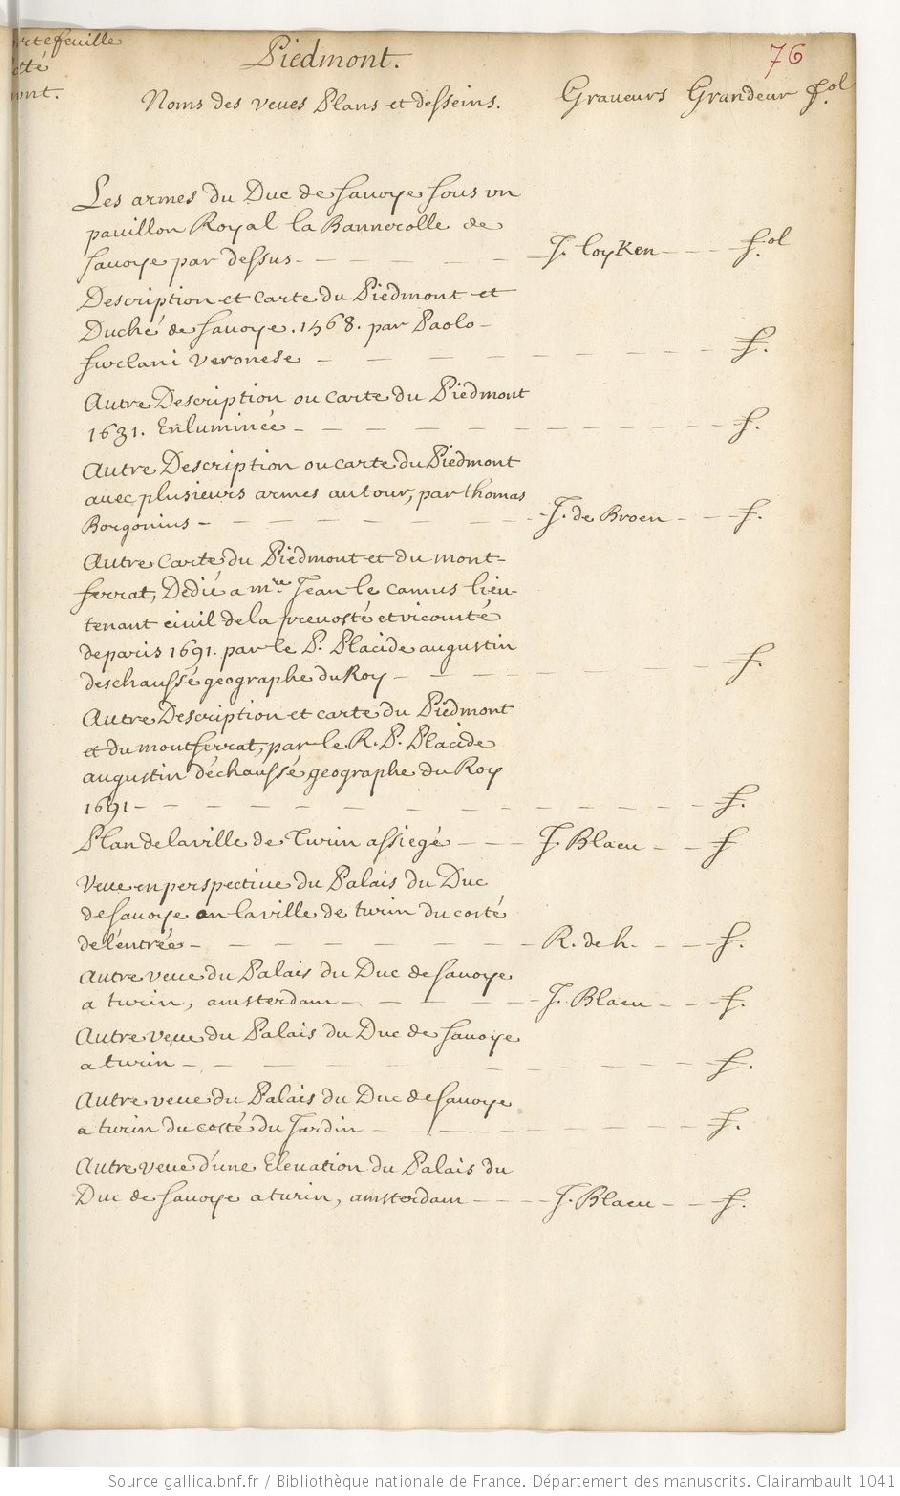 Piedmont.
76
Noms des veues Plans et desseins. Graveurs Grandeur fol
Les armes du Duc de Savoye sous un
pavillon Royal la Bannerolle de
Savoye par dessus - J. loyken - fol
Description et carte du Piedmont et
Duché de Savoye. 1568. par Paolo
forlani veronese - f.
Autre Description ou carte du Piedmont
1631. Enluminée - f.
Autre Description ou carte du Piedmont
avec plusieurs armes autour, par thomas
Borgonius - J. de Broen - f.
Autre carte du Piedmont et du mont-
ferrat, Dedié a mre Jean le camus lieu-
tenant civil de la prevosté et vicomté
de paris 1691. par le P. Placide augustin
deschaussé geographe du Roy - f.
Autre Description et carte du Piedmont
et du montferrat, par le R. P. Placide
augustin déchaussé geographe du Roy
1691 - f.
Plan de la ville de Turin assiegé - J. Blaeu - f
Veue en perspective du Palais du Duc
de Savoye en la ville de turin du costé
de l'entrée - R. de h. - f.
Autre veue du Palais du Duc de Savoye
a turin, amsterdam - J. Blaeu - f.
Autre veue du Palais du Duc de Savoye
a turin - f.
Autre veue du Palais du Duc de Savoye
a turin du costé du Jardin - f.
Autre veue d'une Elevation du Palais du
Duc de Savoye a turin, amsterdam - J. Blaeu - f.
Source gallica.bnf.fr / Bibliothèque nationale de France. Département des manuscrits. Clairambault 1041